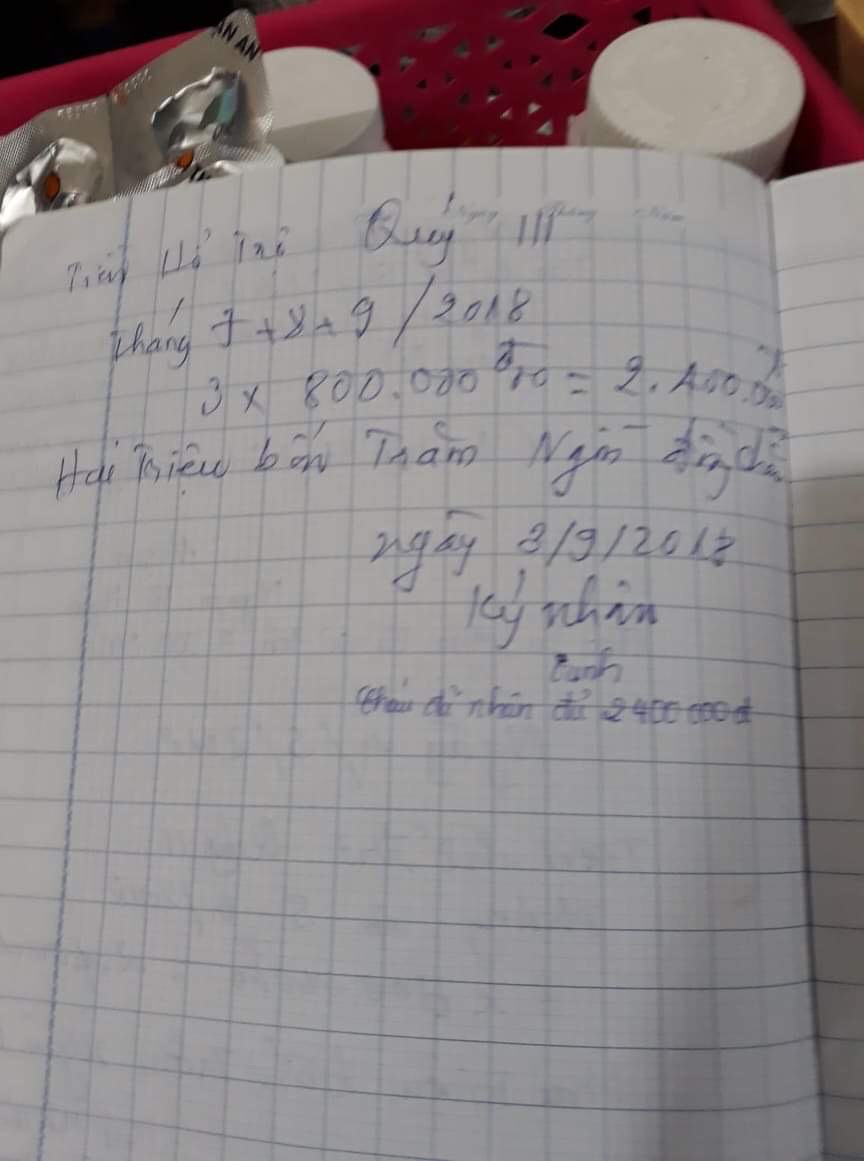 AN AN
Tiền Hỗ Trợ Quý III
tháng 7 + 8 + 9 / 2018
3 x 800.000 = 2.400.000
Hai Triệu bốn Trăm Ngìn đồng chẵn
ngày 3/9/2018
Ký nhân
đã nhân đủ 2400 000đ